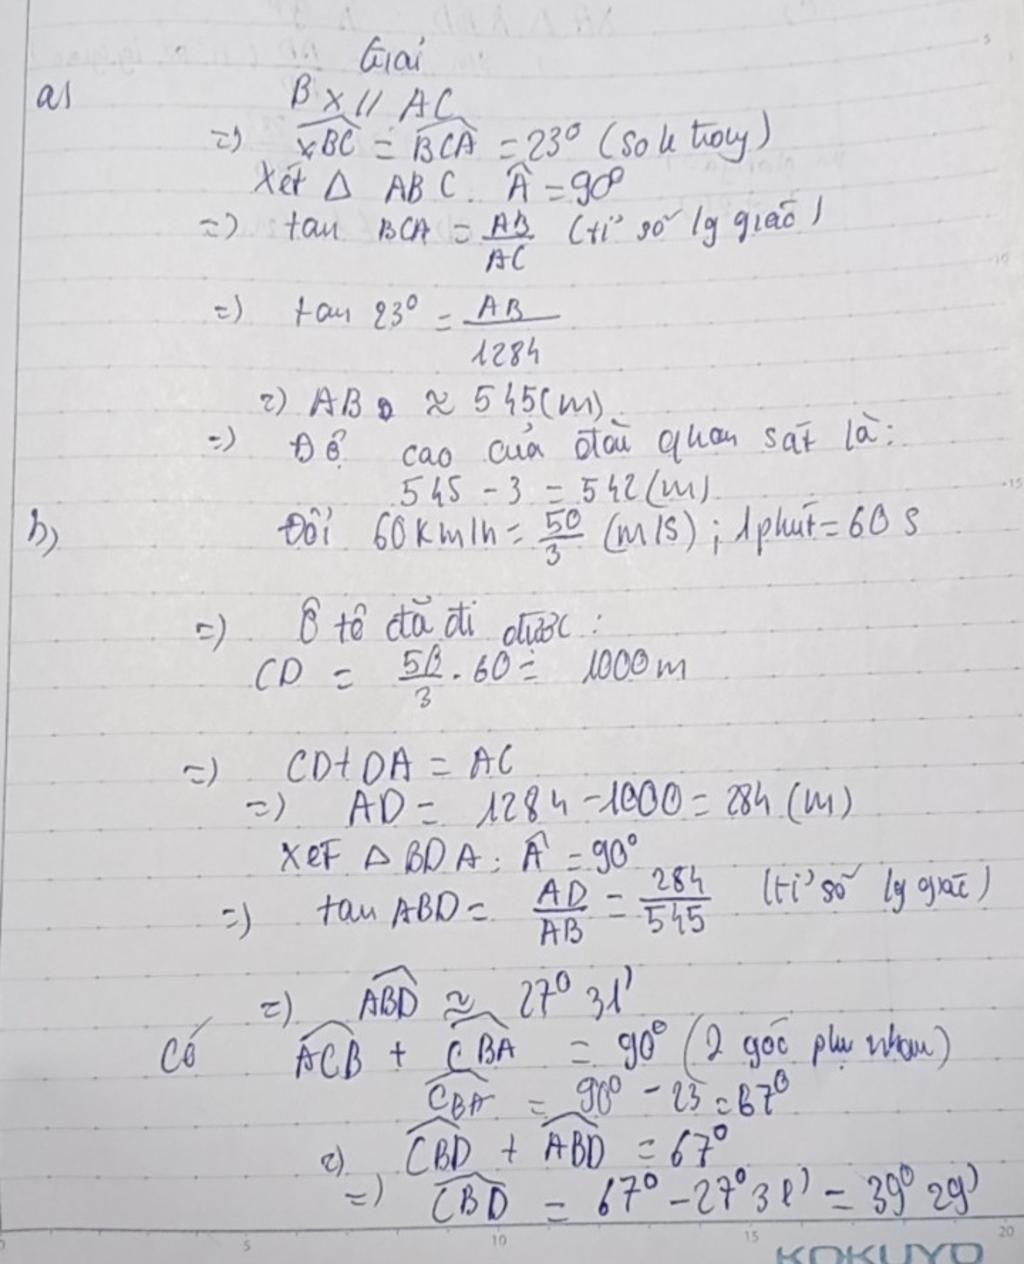 Giải
a)
Bx // AC
=) xBC = BCA = 23° (so le trong)
Xét Δ ABC. Â = 90°
=) tan BCA = AB/AC (tỉ số lg giác)
=) tan 23° = AB/1284
=) AB ≈ 545(m)
=) Độ cao của đài quan sát là:
545 - 3 = 542(m)
b) Đổi 60km/h = 50/3 (m/s); 1phút = 60 s
=) Ô tô đã đi được:
CD = 50/3 . 60 = 1000m
=) CD + DA = AC
=) AD = 1284 - 1000 = 284 (m)
Xét Δ BDA: Â = 90°
=) tan ABD = AD/AB = 284/545 (tỉ số lg giác)
=) ABD ≈ 27° 31'
Có ACB + CBA = 90° (2 góc phụ nhau)
CBA = 90° - 23 = 67°
=) CBD + ABD = 67°
=) CBD = 67° - 27° 31' = 39° 29'
5
10
15
5
10
15
20
KOKUYO